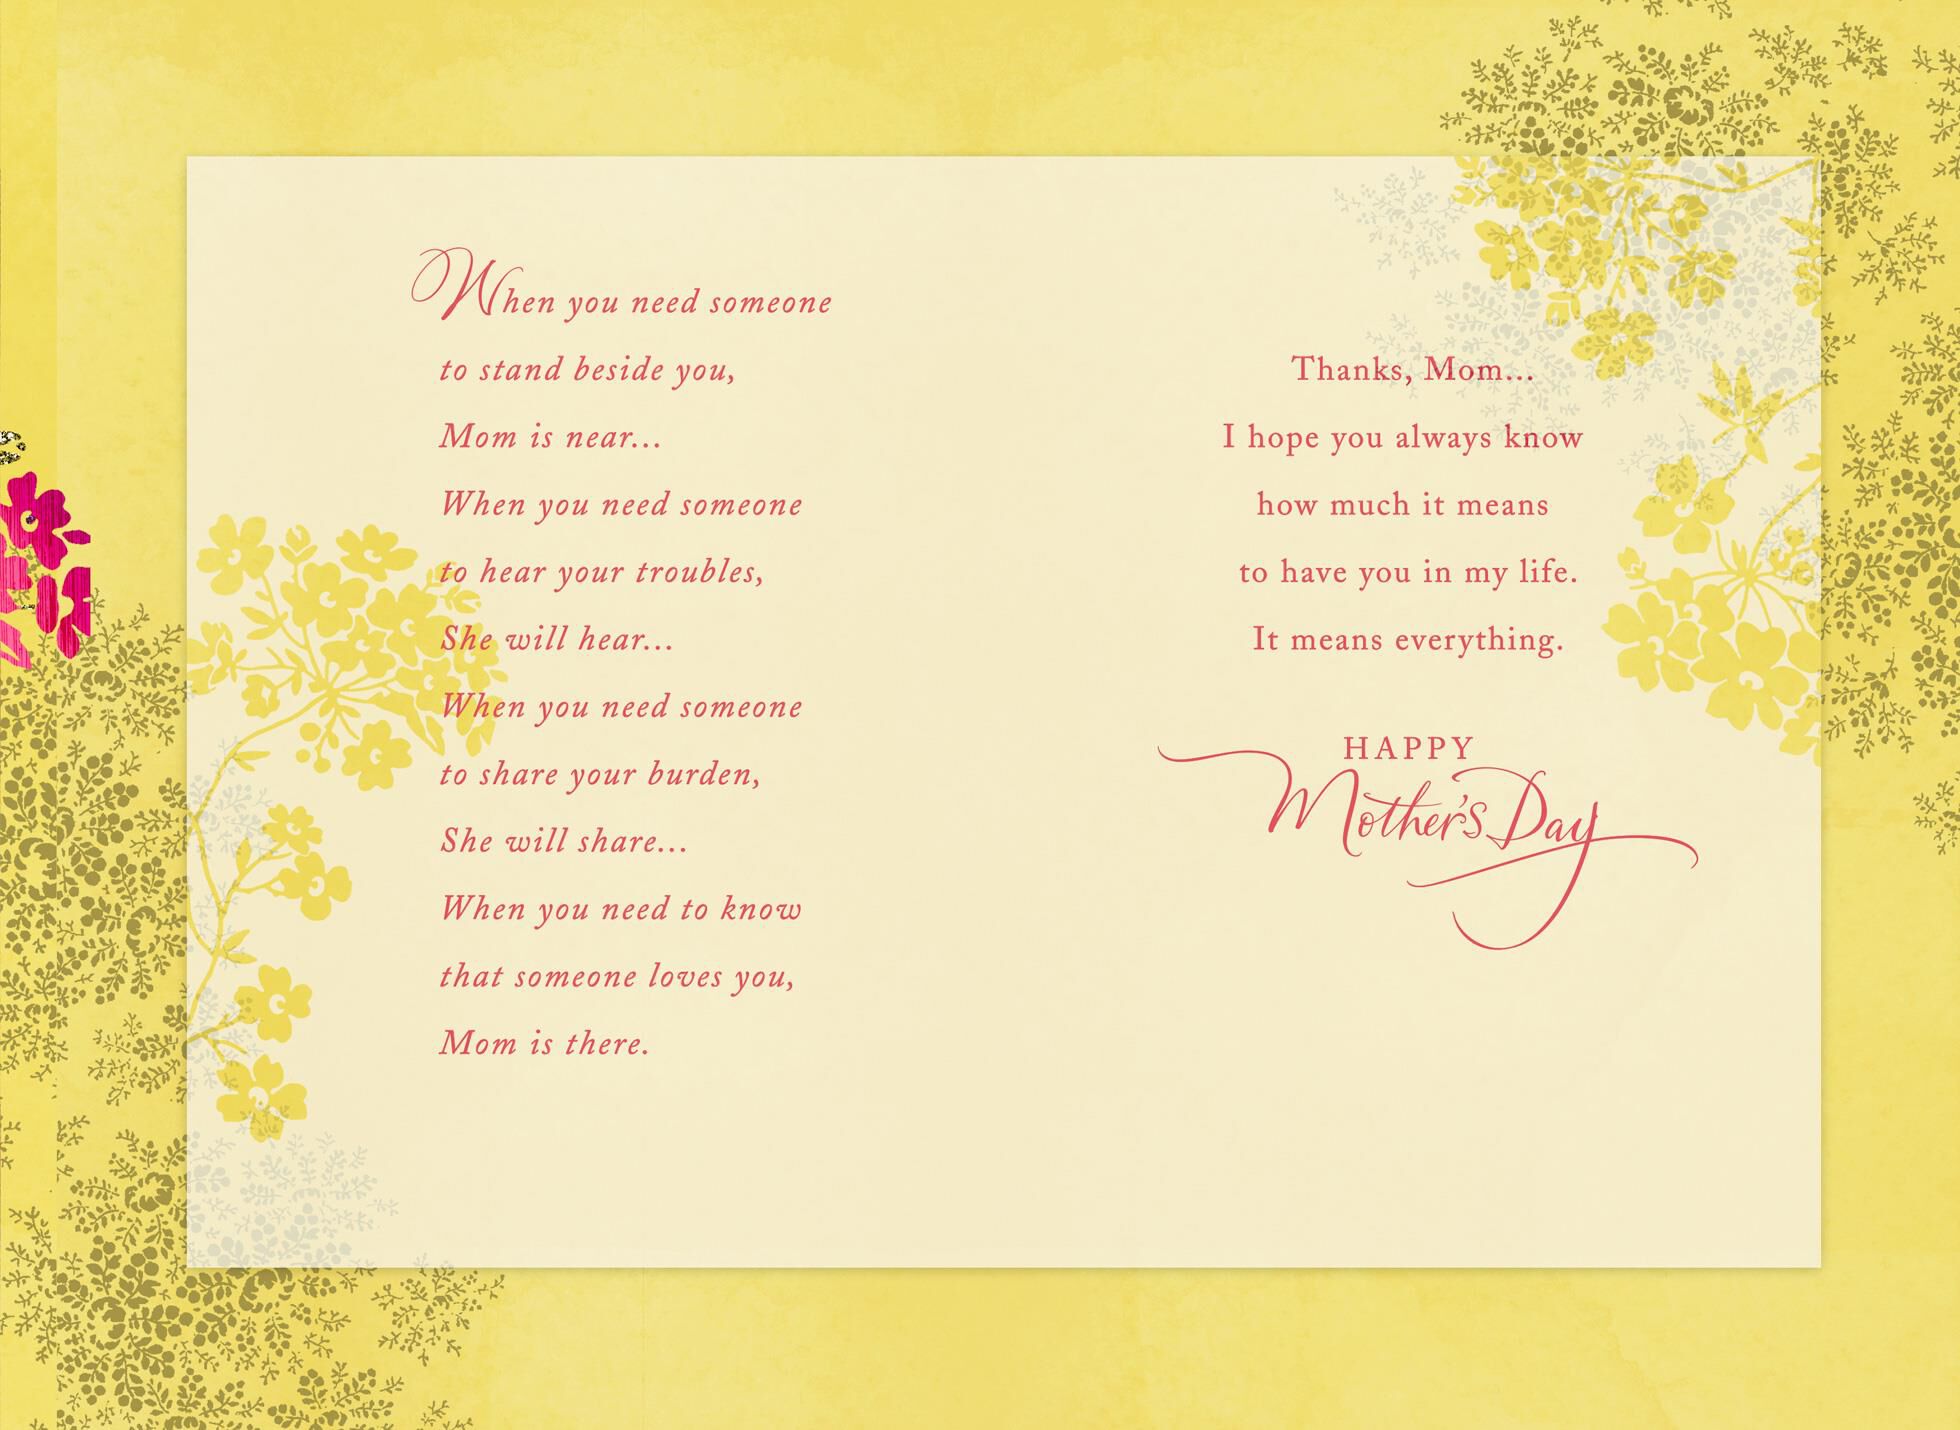 When you need someone
to stand beside you,
Mom is near...
When you need someone
to hear your troubles,
She will hear...
When you need someone
to share your burden,
She will share...
When you need to know
that someone loves you,
Mom is there.
Thanks, Mom...
I hope you always know
how much it means
to have you in my life.
It means everything.
HAPPY
Mother's Day